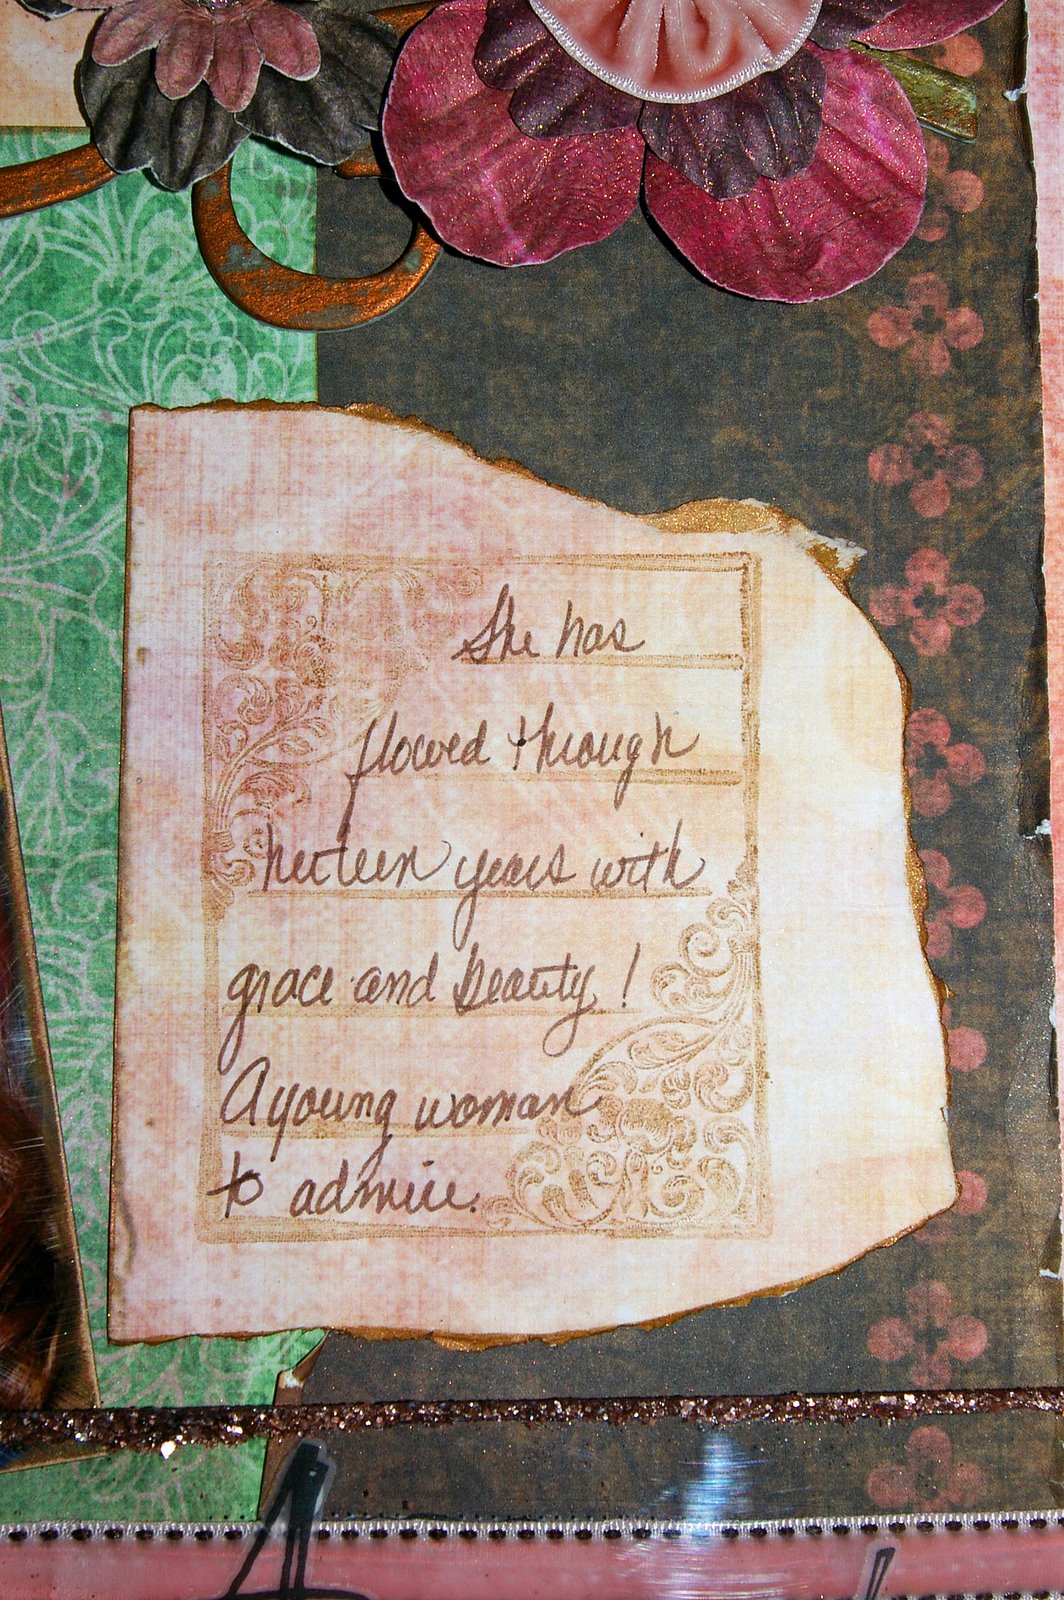 She has
flowed through
thirteen years with
grace and beauty!
A young woman
to admire.